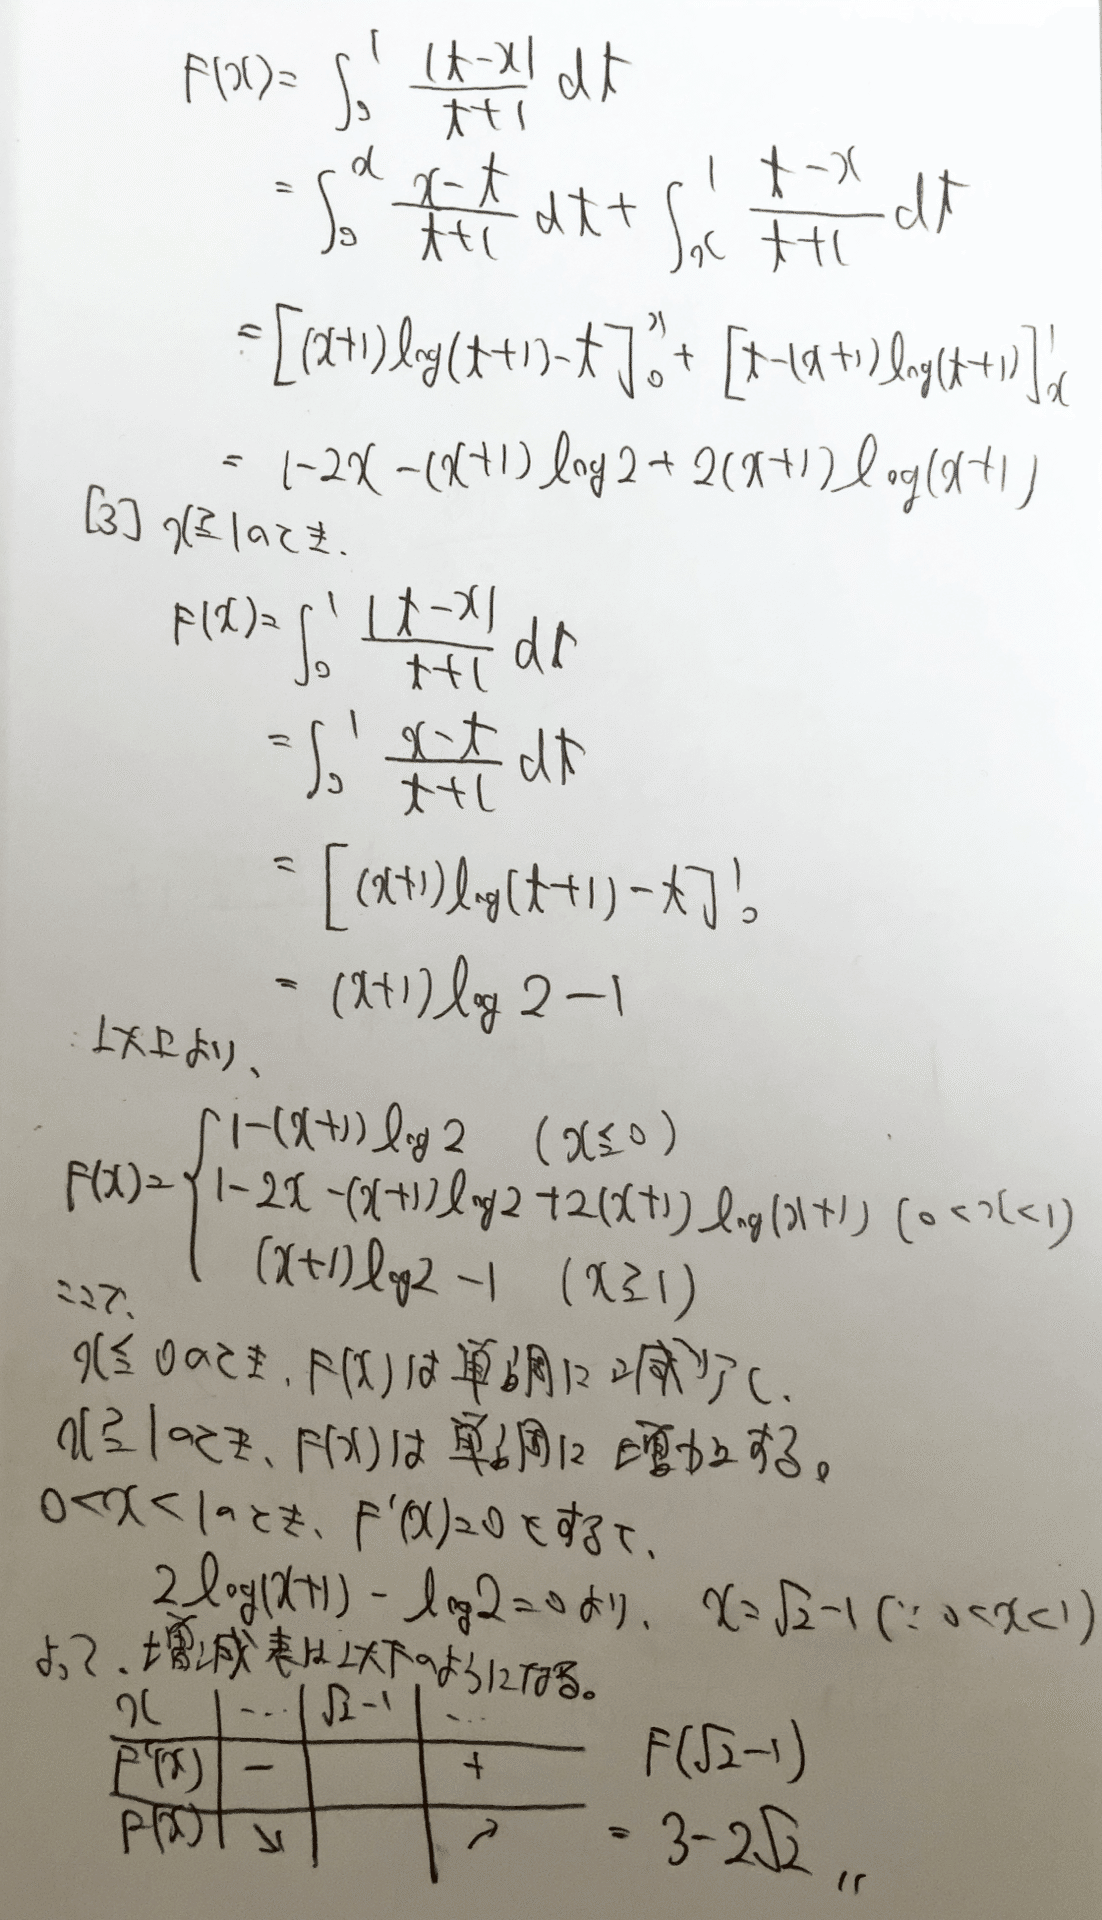 F(x)=∫₀¹ |t-x|/(t+1) dt
=∫₀ˣ (x-t)/(t+1) dt+∫ₓ¹ (t-x)/(t+1) dt
=[(x+1)log(t+1)-t]₀ˣ+[t-(x+1)log(t+1)]ₓ¹
=1-2x-(x+1)log2+2(x+1)log(x+1)
[3] x≧1のとき、
F(x)=∫₀¹ |t-x|/(t+1) dt
=∫₀¹ (x-t)/(t+1) dt
=[(x+1)log(t+1)-t]₀¹
=(x+1)log2-1
以上より、
F(x)={1-(x+1)log2 (x≦0)
1-2x-(x+1)log2+2(x+1)log(x+1) (0<x<1)
(x+1)log2-1 (x≧1)
ここで、
x≦0のとき、F(x)は単調に減少し、
x≧1のとき、F(x)は単調に増加する。
0<x<1のとき、F'(x)=0とすると、
2log(x+1)-log2=0より、x=√2-1(∵0<x<1)
よって、増減表は以下のようになる。
x … √2-1 …
F'(x) - +
F(x) ↘ ↗
F(√2-1)
=3-2√2〃